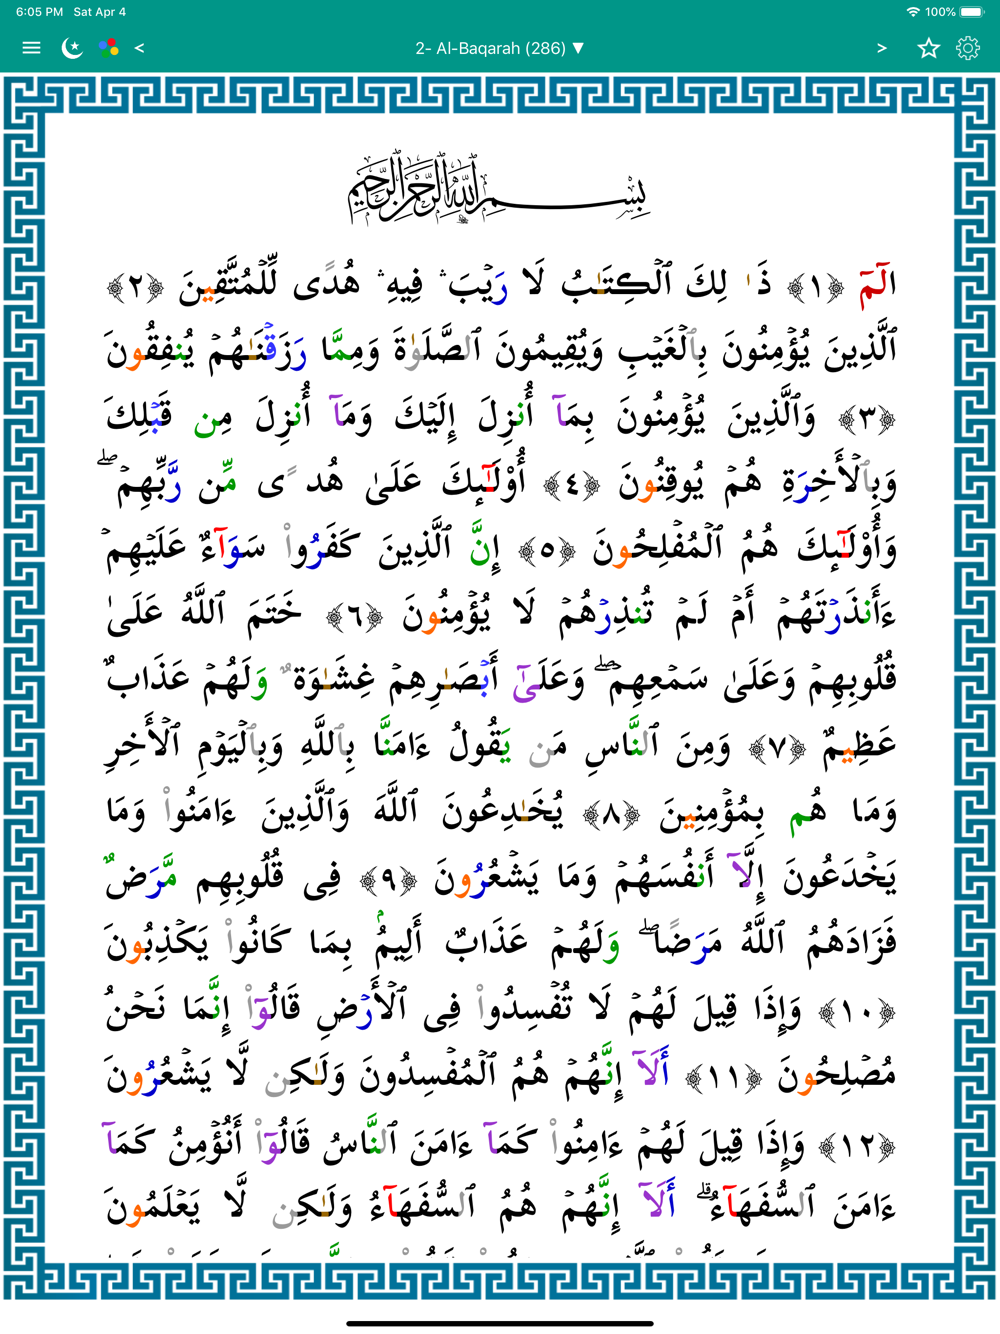 6:05 PM Sat Apr 4 100%
< 2- Al-Baqarah (286) ▼ >
بِسْمِ ٱللَّهِ ٱلرَّحْمَٰنِ ٱلرَّحِيمِ
الٓمٓ ﴿١﴾ ذَٰ لِكَ ٱلْكِتَـٰبُ لَا رَيْبَ ۛ فِيهِ ۛ هُدًى لِّلْمُتَّقِينَ ﴿٢﴾
ٱلَّذِينَ يُؤْمِنُونَ بِٱلْغَيْبِ وَيُقِيمُونَ ٱلصَّلَوٰةَ وَمِمَّا رَزَقْنَـٰهُمْ يُنفِقُونَ
﴿٣﴾ وَٱلَّذِينَ يُؤْمِنُونَ بِمَآ أُنزِلَ إِلَيْكَ وَمَآ أُنزِلَ مِن قَبْلِكَ
وَبِٱلْأَخِرَةِ هُمْ يُوقِنُونَ ﴿٤﴾ أُوْلَـٰٓئِكَ عَلَىٰ هُدًى مِّن رَّبِّهِمْ ۖ
وَأُوْلَـٰٓئِكَ هُمُ ٱلْمُفْلِحُونَ ﴿٥﴾ إِنَّ ٱلَّذِينَ كَفَرُواْ سَوَآءٌ عَلَيْهِمْ
ءَأَنذَرْتَهُمْ أَمْ لَمْ تُنذِرْهُمْ لَا يُؤْمِنُونَ ﴿٦﴾ خَتَمَ ٱللَّهُ عَلَىٰ
قُلُوبِهِمْ وَعَلَىٰ سَمْعِهِمْ ۖ وَعَلَىٰٓ أَبْصَـٰرِهِمْ غِشَـٰوَةٌ وَلَهُمْ عَذَابٌ
عَظِيمٌ ﴿٧﴾ وَمِنَ ٱلنَّاسِ مَن يَقُولُ ءَامَنَّا بِٱللَّهِ وَبِٱلْيَوْمِ ٱلْأَخِرِ
وَمَا هُم بِمُؤْمِنِينَ ﴿٨﴾ يُخَـٰدِعُونَ ٱللَّهَ وَٱلَّذِينَ ءَامَنُواْ وَمَا
يَخْدَعُونَ إِلَّآ أَنفُسَهُمْ وَمَا يَشْعُرُونَ ﴿٩﴾ فِى قُلُوبِهِم مَّرَضٌ
فَزَادَهُمُ ٱللَّهُ مَرَضًا ۖ وَلَهُمْ عَذَابٌ أَلِيمٌۢ بِمَا كَانُواْ يَكْذِبُونَ
﴿١٠﴾ وَإِذَا قِيلَ لَهُمْ لَا تُفْسِدُواْ فِى ٱلْأَرْضِ قَالُوٓاْ إِنَّمَا نَحْنُ
مُصْلِحُونَ ﴿١١﴾ أَلَآ إِنَّهُمْ هُمُ ٱلْمُفْسِدُونَ وَلَـٰكِن لَّا يَشْعُرُونَ
﴿١٢﴾ وَإِذَا قِيلَ لَهُمْ ءَامِنُواْ كَمَآ ءَامَنَ ٱلنَّاسُ قَالُوٓاْ أَنُؤْمِنُ كَمَآ
ءَامَنَ ٱلسُّفَهَآءُ ۗ أَلَآ إِنَّهُمْ هُمُ ٱلسُّفَهَآءُ وَلَـٰكِن لَّا يَعْلَمُونَ